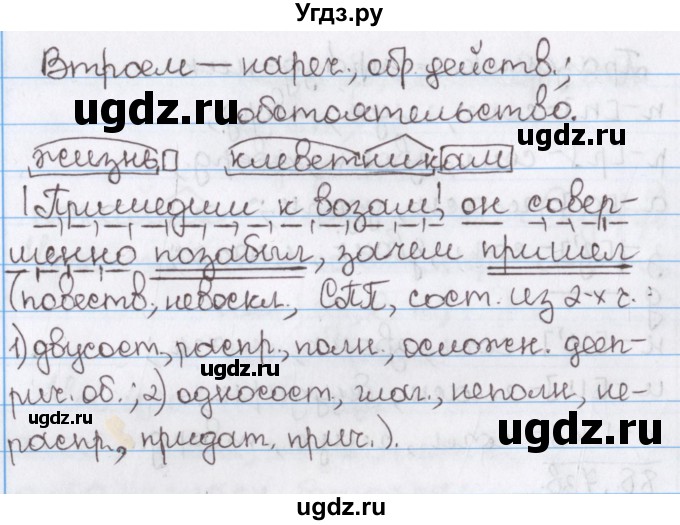 Угдз.ру
Втроем — нареч., обр. действ.;
ugdz.ru обстоятельство. ugdz.ru
жизнь клеветникам
Пришедши к возам, он совер-
шенно позабыл, зачем пришел
(повеств., невоскл., СПП, сост. из 2-х ч.:
ugdz.ru
1) двусост., распр., полн., осложн. дееп-
рич. об.; 2) односост., глаг., неполн., не-
ugdz.ru
распр., придат. прич.).
ugdz.ru
ugdz.ru